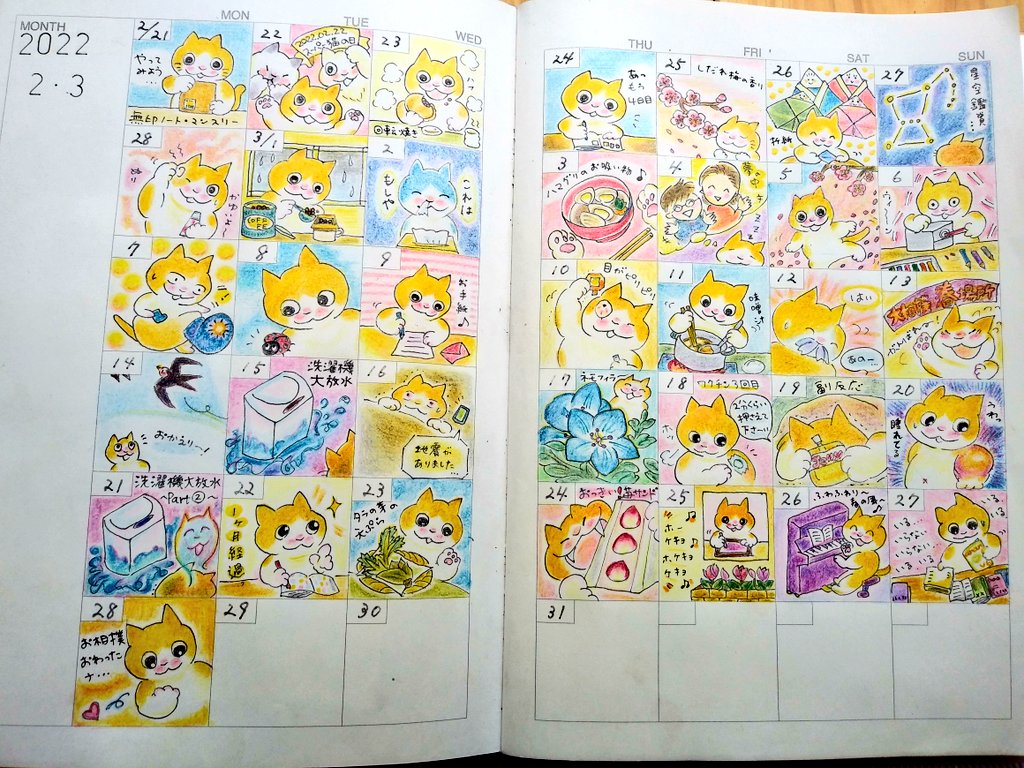 MONTH
2022
2・3
MON
TUE
WED
THU
FRI
SAT
SUN
2/21
やって
みよう…
無印ノート・マンスリー
22
2022.02.22
スーパー猫の日
23
回転焼き
24
あつ
もう
4日目
25
しだれ梅の香り
26
折紙
27
星空鑑賞…
28
かゆいよ〜
3/1
COFFEE
2
これは
もしや
3
ハマグリのお吸い物♪
4
夢の中
ZZZ
5
6
ウィ〜ン
7
8
9
お手紙♪
10
目がピリピリ
11
味噌汁
12
はい
あの〜
13
大相撲春場所
14
おかえり〜!
15
洗濯機
大放水
16
地震が
ありました…
17
ネモフィラ
18
ワクチン3回目
2分くらい
押さえて
下さーい
ホッ
19
副反応
20
うわっ
腫れてる
21
洗濯機大放水
〜Part②〜
22
1ヶ月経過
23
タラの芽の
天ぷら
24
おっきい苺サンド
25
ホー
ケキョ
ホケキョ
ケキョ
26
ふわふわり〜
春の風〜♪
27
いる…
いる…
いらない
いらない
いる
いる
28
お相撲
おわった
ナ…
29
30
31